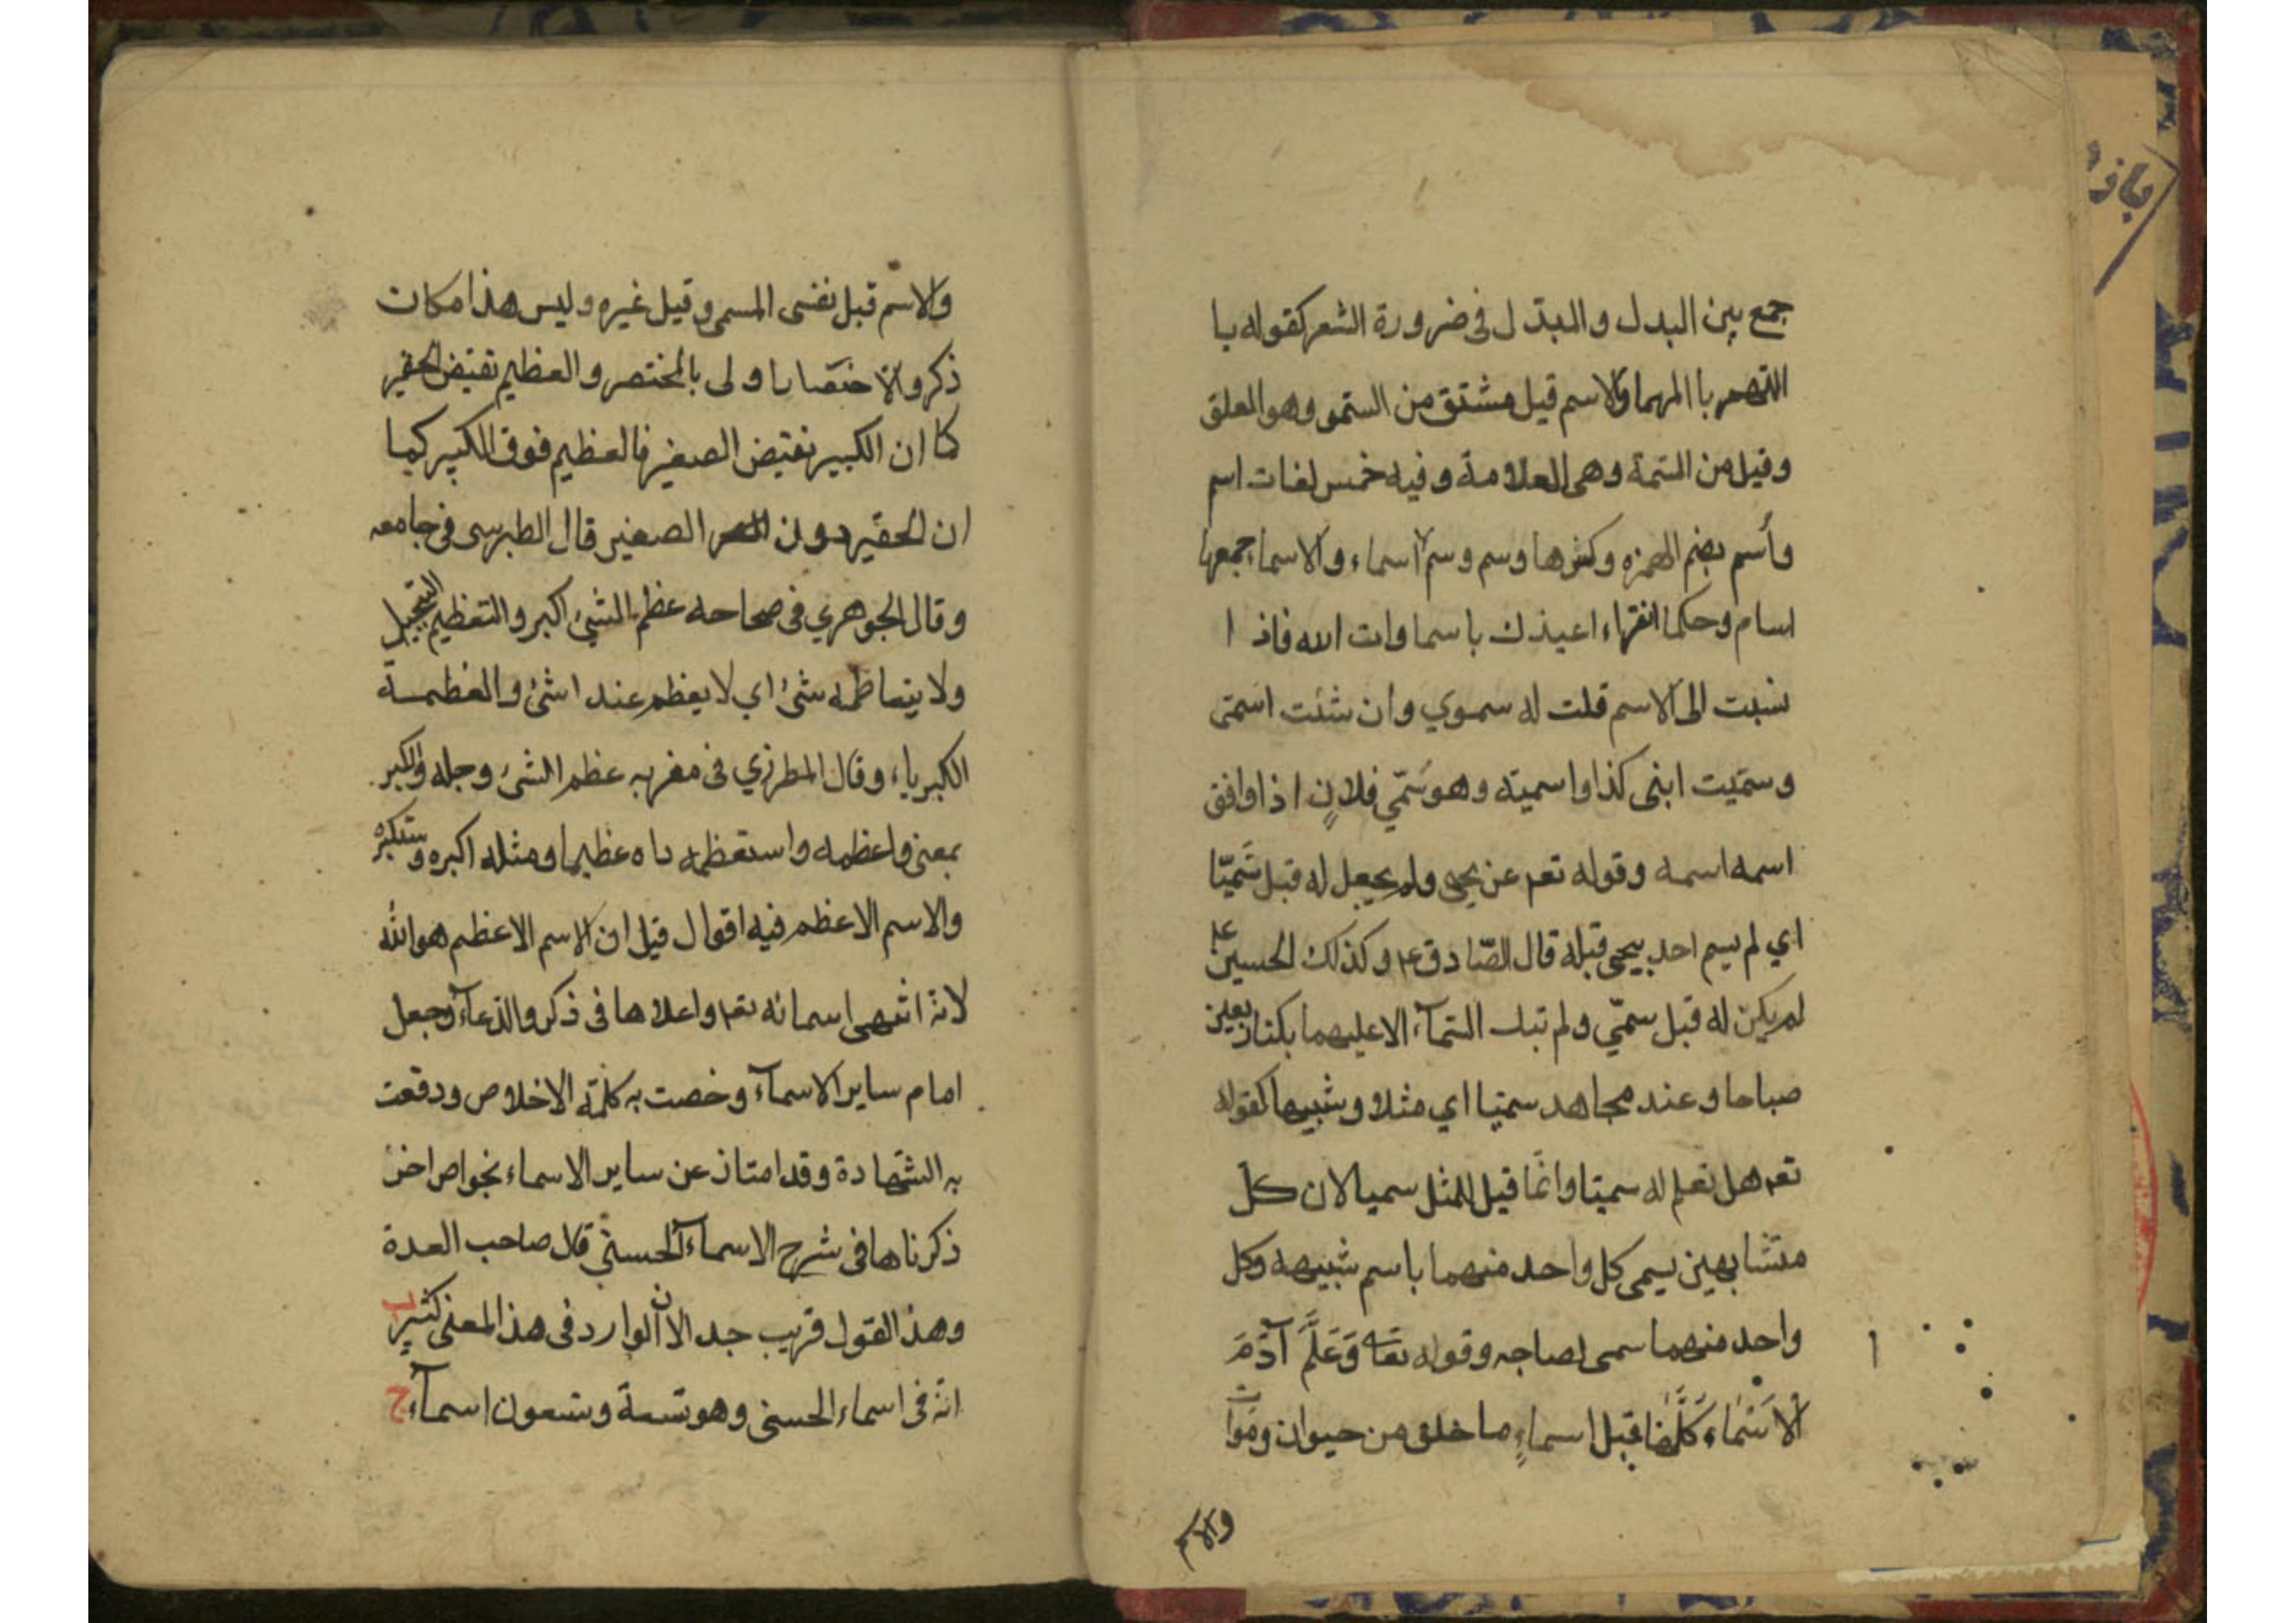 جمع بين البدل والمبدل فى ضرورة الشعر كقوله يا
اللهم يا اللهما والاسم قيل مشتق من السّمو وهو العلو
وقيل من السّمة وهى العلامة وفيه خمس لغات اسم
وأسم بضم الهمزه وكسرها وسم وسم اسماء والاسماء جمعها
اسام وحكا الفراء اعيذك باسماوات الله فاذا
نسبت الى الاسم قلت له سموي وان شئت اسمى
وسمّيت ابنى كذا واسميته وهو سَمّي فلانٍ اذا وافق
اسمه اسمه وقوله تعم عن يحيى ولم يجعل له قبل سَميّا
اي لم يسم احد بيحيى قبله قال الصّادق ع وكذلك الحسين ع
لم يكن له قبل سمّي ولم تبك السّمآء الا عليهما بكتا اربعين
صباحا وعند مجاهد سميّا اي مثلا وشبيها كقوله
تعم هل تعلم له سميّا وانّما قيل للمثل سميا لان كلّ
متشابهين يسمى كل واحد منهما باسم شبيهه وكل
واحد منهما سمى لصاحبه وقوله تعا وَعَلَّمَ آدَمَ
الْاَسْمٰاء كُلَّهٰا قيل اسماءِ ما خلق من حيوان وموات
والاسم
والاسم قيل نفس المسمى وقيل غيره وليس هذا مكان
ذكره والاختصار اولى بالمختصر والعظيم نقيض الحقير
كما ان الكبير نقيض الصغير فالعظيم فوق الكبير كما
ان الحقير دون الصغير قال الطبرسى فى جامعه
وقال الجوهري فى صحاحه عظم الشئ اكبر والتعظيم التبجيل
ولا يتعاظمه شئ اي لا يعظم عنده شئ والعظمة
الكبرياء وقال المطرزي فى مغربه عظم الشئ وجله والكبر
بمعنى واعظمه واستعظمه راه عظيما ومثله اكبره واستكبره
والاسم الاعظم فيه اقوال قيل ان الاسم الاعظم هو الله
لانّه اشهى اسمائه تعم واعلاها فى ذكر والدّعآء وجعل
امام ساير الاسمآء وخصت به كلمة الاخلاص ودقعت
به الشّهادة وقد امتاز عن ساير الاسماء بخواص اخر
ذكرناها فى شرح الاسماء الحسنى قال صاحب العدة
وهذ القول قريب جدا لان الوارد فى هذ المعنى كثير
انّه فى اسماء الحسنى وهو تسعة وتسعون اسمآء